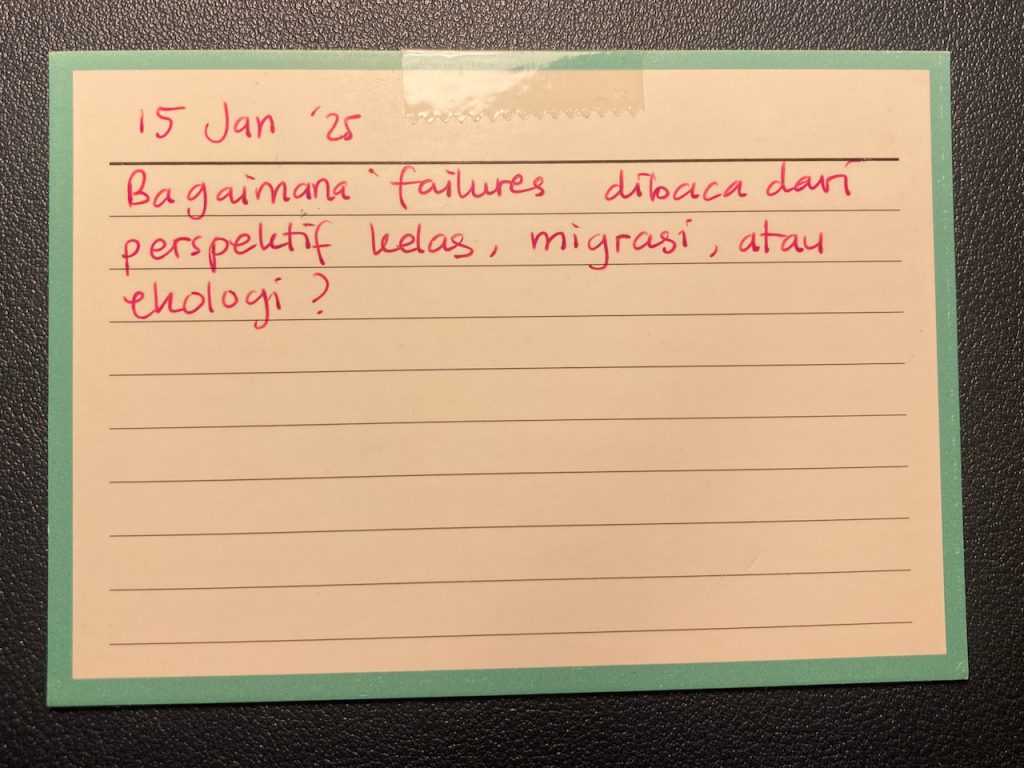 15 Jan '25
Bagaimana failures dibaca dari
perspektif kelas, migrasi, atau
ekologi?